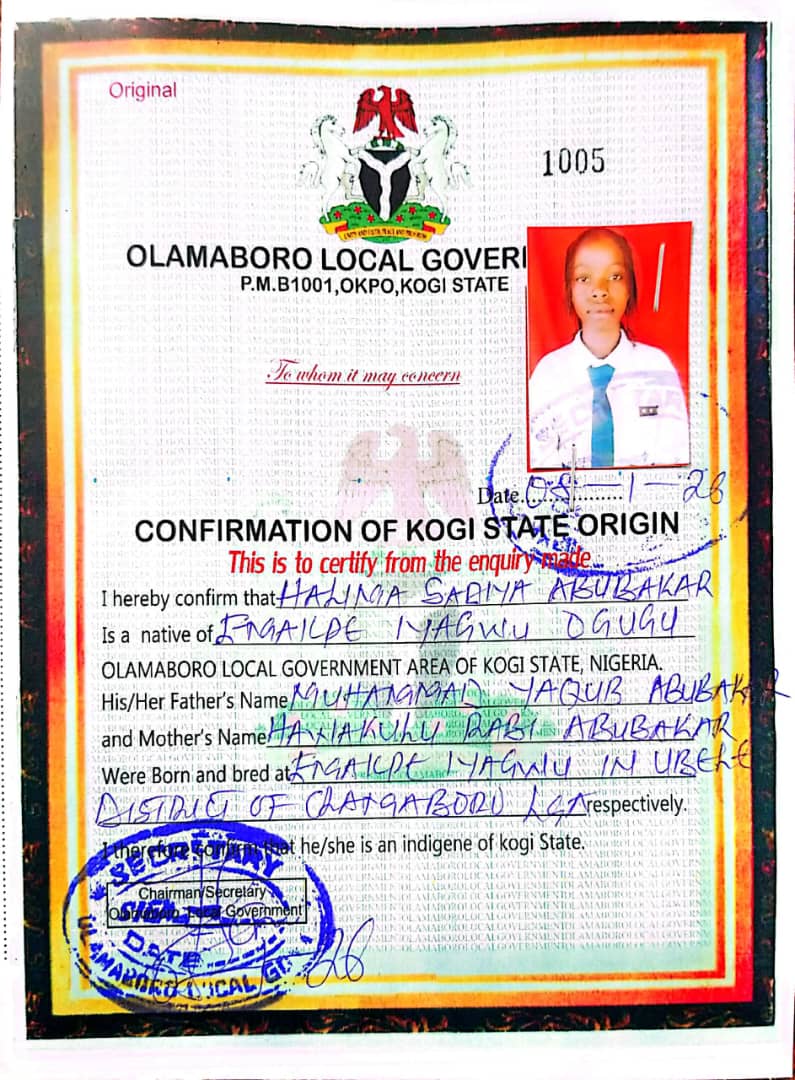 Original
1005
UNITY AND FAITH, PEACE AND PROGRESS
OLAMABORO LOCAL GOVERN
P.M.B1001,OKPO,KOGI STATE
To whom it may concern
Date 08-1-26
CONFIRMATION OF KOGI STATE ORIGIN
This is to certify from the enquiry made
I hereby confirm that HALIMA SADIYA ABUBAKAR
Is a native of IYAGWU OGUGU
OLAMABORO LOCAL GOVERNMENT AREA OF KOGI STATE, NIGERIA.
His/Her Father's Name MUHAMMAD YAQUB ABUBAKAR
and Mother's Name RABI ABUBAKAR
Were Born and bred at IYAGWU IN UBELE
DISTRICT OF LGA respectively.
I therefore confirm that he/she is an indigene of kogi State.
SECRETARY
Chairman/Secretary
Olamaboro Local Government
SIGN
DATE
OLAMABORO LOCAL
26